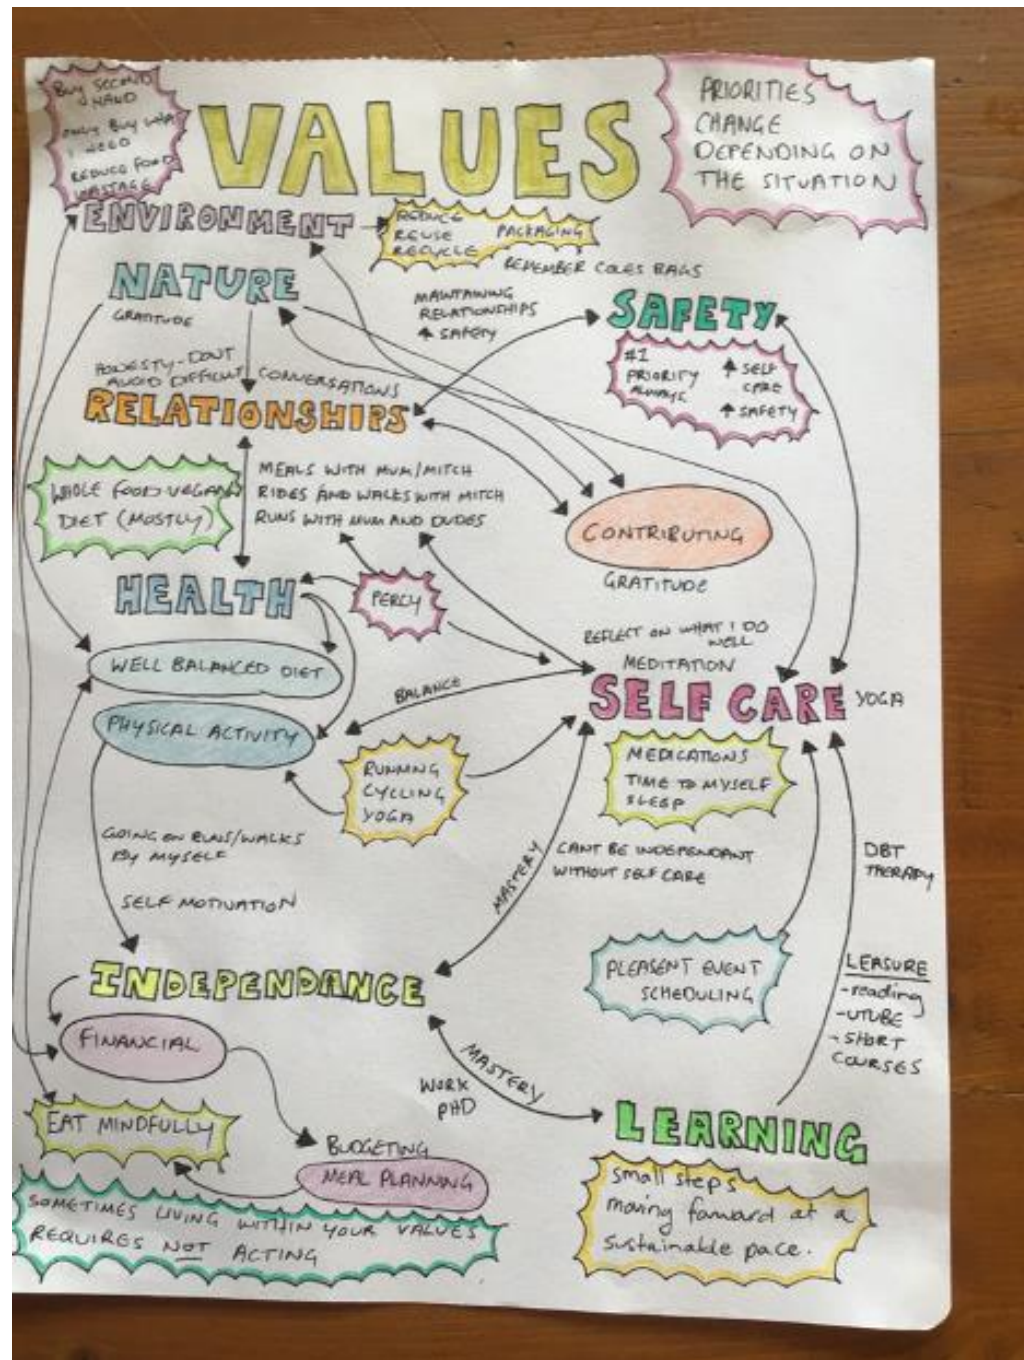 BUY SECOND
HAND
ONLY BUY WHAT
I NEED
REDUCE FOOD
WASTAGE
VALUES
PRIORITIES
CHANGE
DEPENDING ON
THE SITUATION
ENVIRONMENT
REDUCE
REUSE PACKAGING
RECYCLE
REMEMBER COLES BAGS
NATURE
GRATITUDE
MAINTAINING
RELATIONSHIPS
↑ SAFETY
SAFETY
#1
PRIORITY
ALWAYS
↑ SELF
CARE
↑ SAFETY
HONESTY - DONT
AVOID DIFFICULT CONVERSATIONS
RELATIONSHIPS
WHOLE FOOD VEGAN
DIET (MOSTLY)
MEALS WITH MUM/MITCH
RIDES AND WALKS WITH MITCH
RUNS WITH MUM AND DUDES
CONTRIBUTING
GRATITUDE
HEALTH
PERCY
REFLECT ON WHAT I DO
WELL
MEDITATION
WELL BALANCED DIET
BALANCE
SELF CARE YOGA
PHYSICAL ACTIVITY
RUNNING
CYCLING
YOGA
MEDICATIONS
TIME TO MYSELF
SLEEP
GOING ON RUNS/WALKS
BY MYSELF
SELF MOTIVATION
MASTERY
CANT BE INDEPENDANT
WITHOUT SELF CARE
DBT
THERAPY
INDEPENDANCE
PLEASENT EVENT
SCHEDULING
LEASURE
- reading
- UTUBE
- SHORT
COURSES
FINANCIAL
MASTERY
WORK
PHD
EAT MINDFULLY
BUDGETING
MEAL PLANNING
LEARNING
small steps
moving forward at a
sustainable pace.
SOMETIMES LIVING WITHIN YOUR VALUES
REQUIRES NOT ACTING